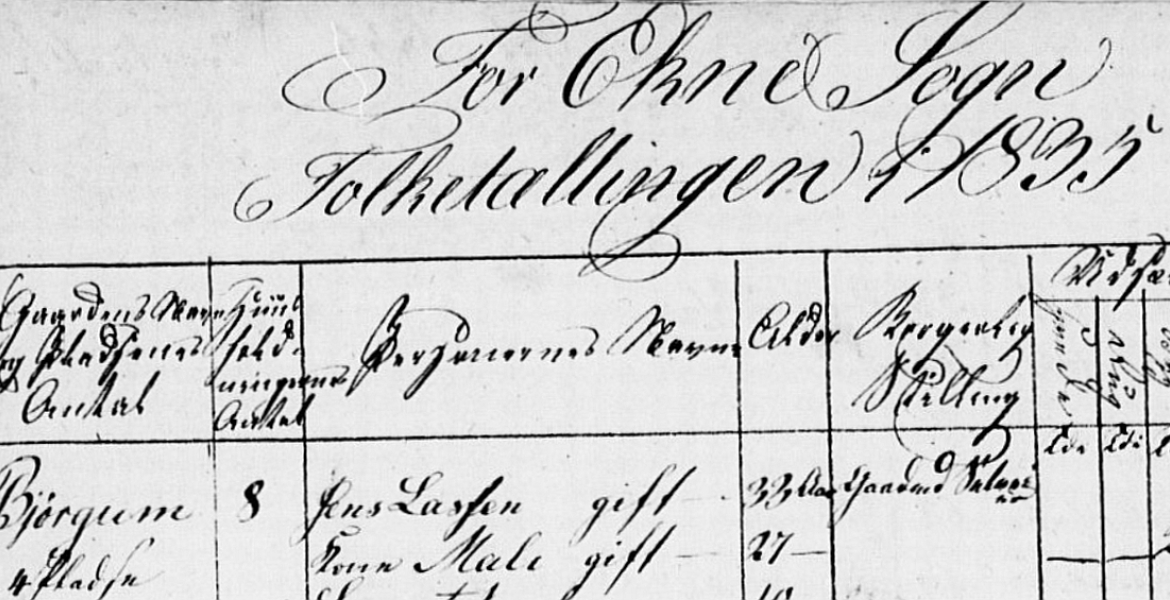 For Økne Sogn
Folketællingen i 1835
Gaardens Navn
og Pladsenes
Antal
Huus
hold-
ningernes
Antal
Personernes Navne
Alder
Borgerlig
Stilling
Udsæ
Bjørgum
4 Pladse
8
Jens Lassen gift
33 Aar
Gaardmd Selveier
Kone Mali gift
27